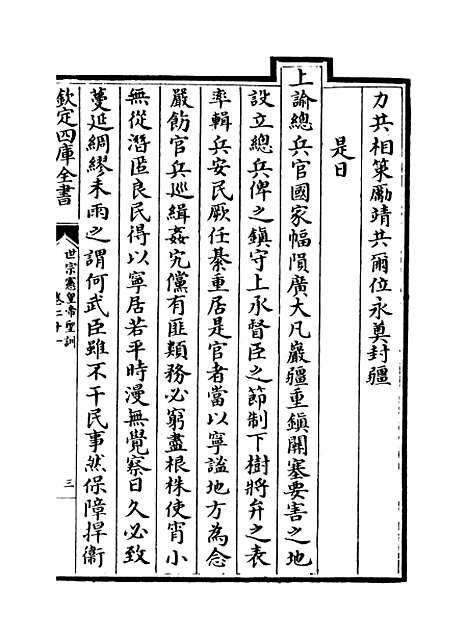 力共相策勵靖共爾位永奠封疆
是日
上諭總兵官國家幅隕廣大凡巖疆重鎮關塞要害之地
設立總兵俾之鎮守上承督臣之節制下樹將弁之表
率輯兵安民厥任綦重居是官者當以寧謐地方為念
嚴飭官兵巡緝姦宄儻有匪類務必窮盡根株使宵小
無從潛匿良民得以寧居若平時漫無覺察日久必致
蔓延綢繆未雨之謂何武臣雖不干民事然保障捍衞
欽定四庫全書
世宗憲皇帝聖訓
卷二十一
三